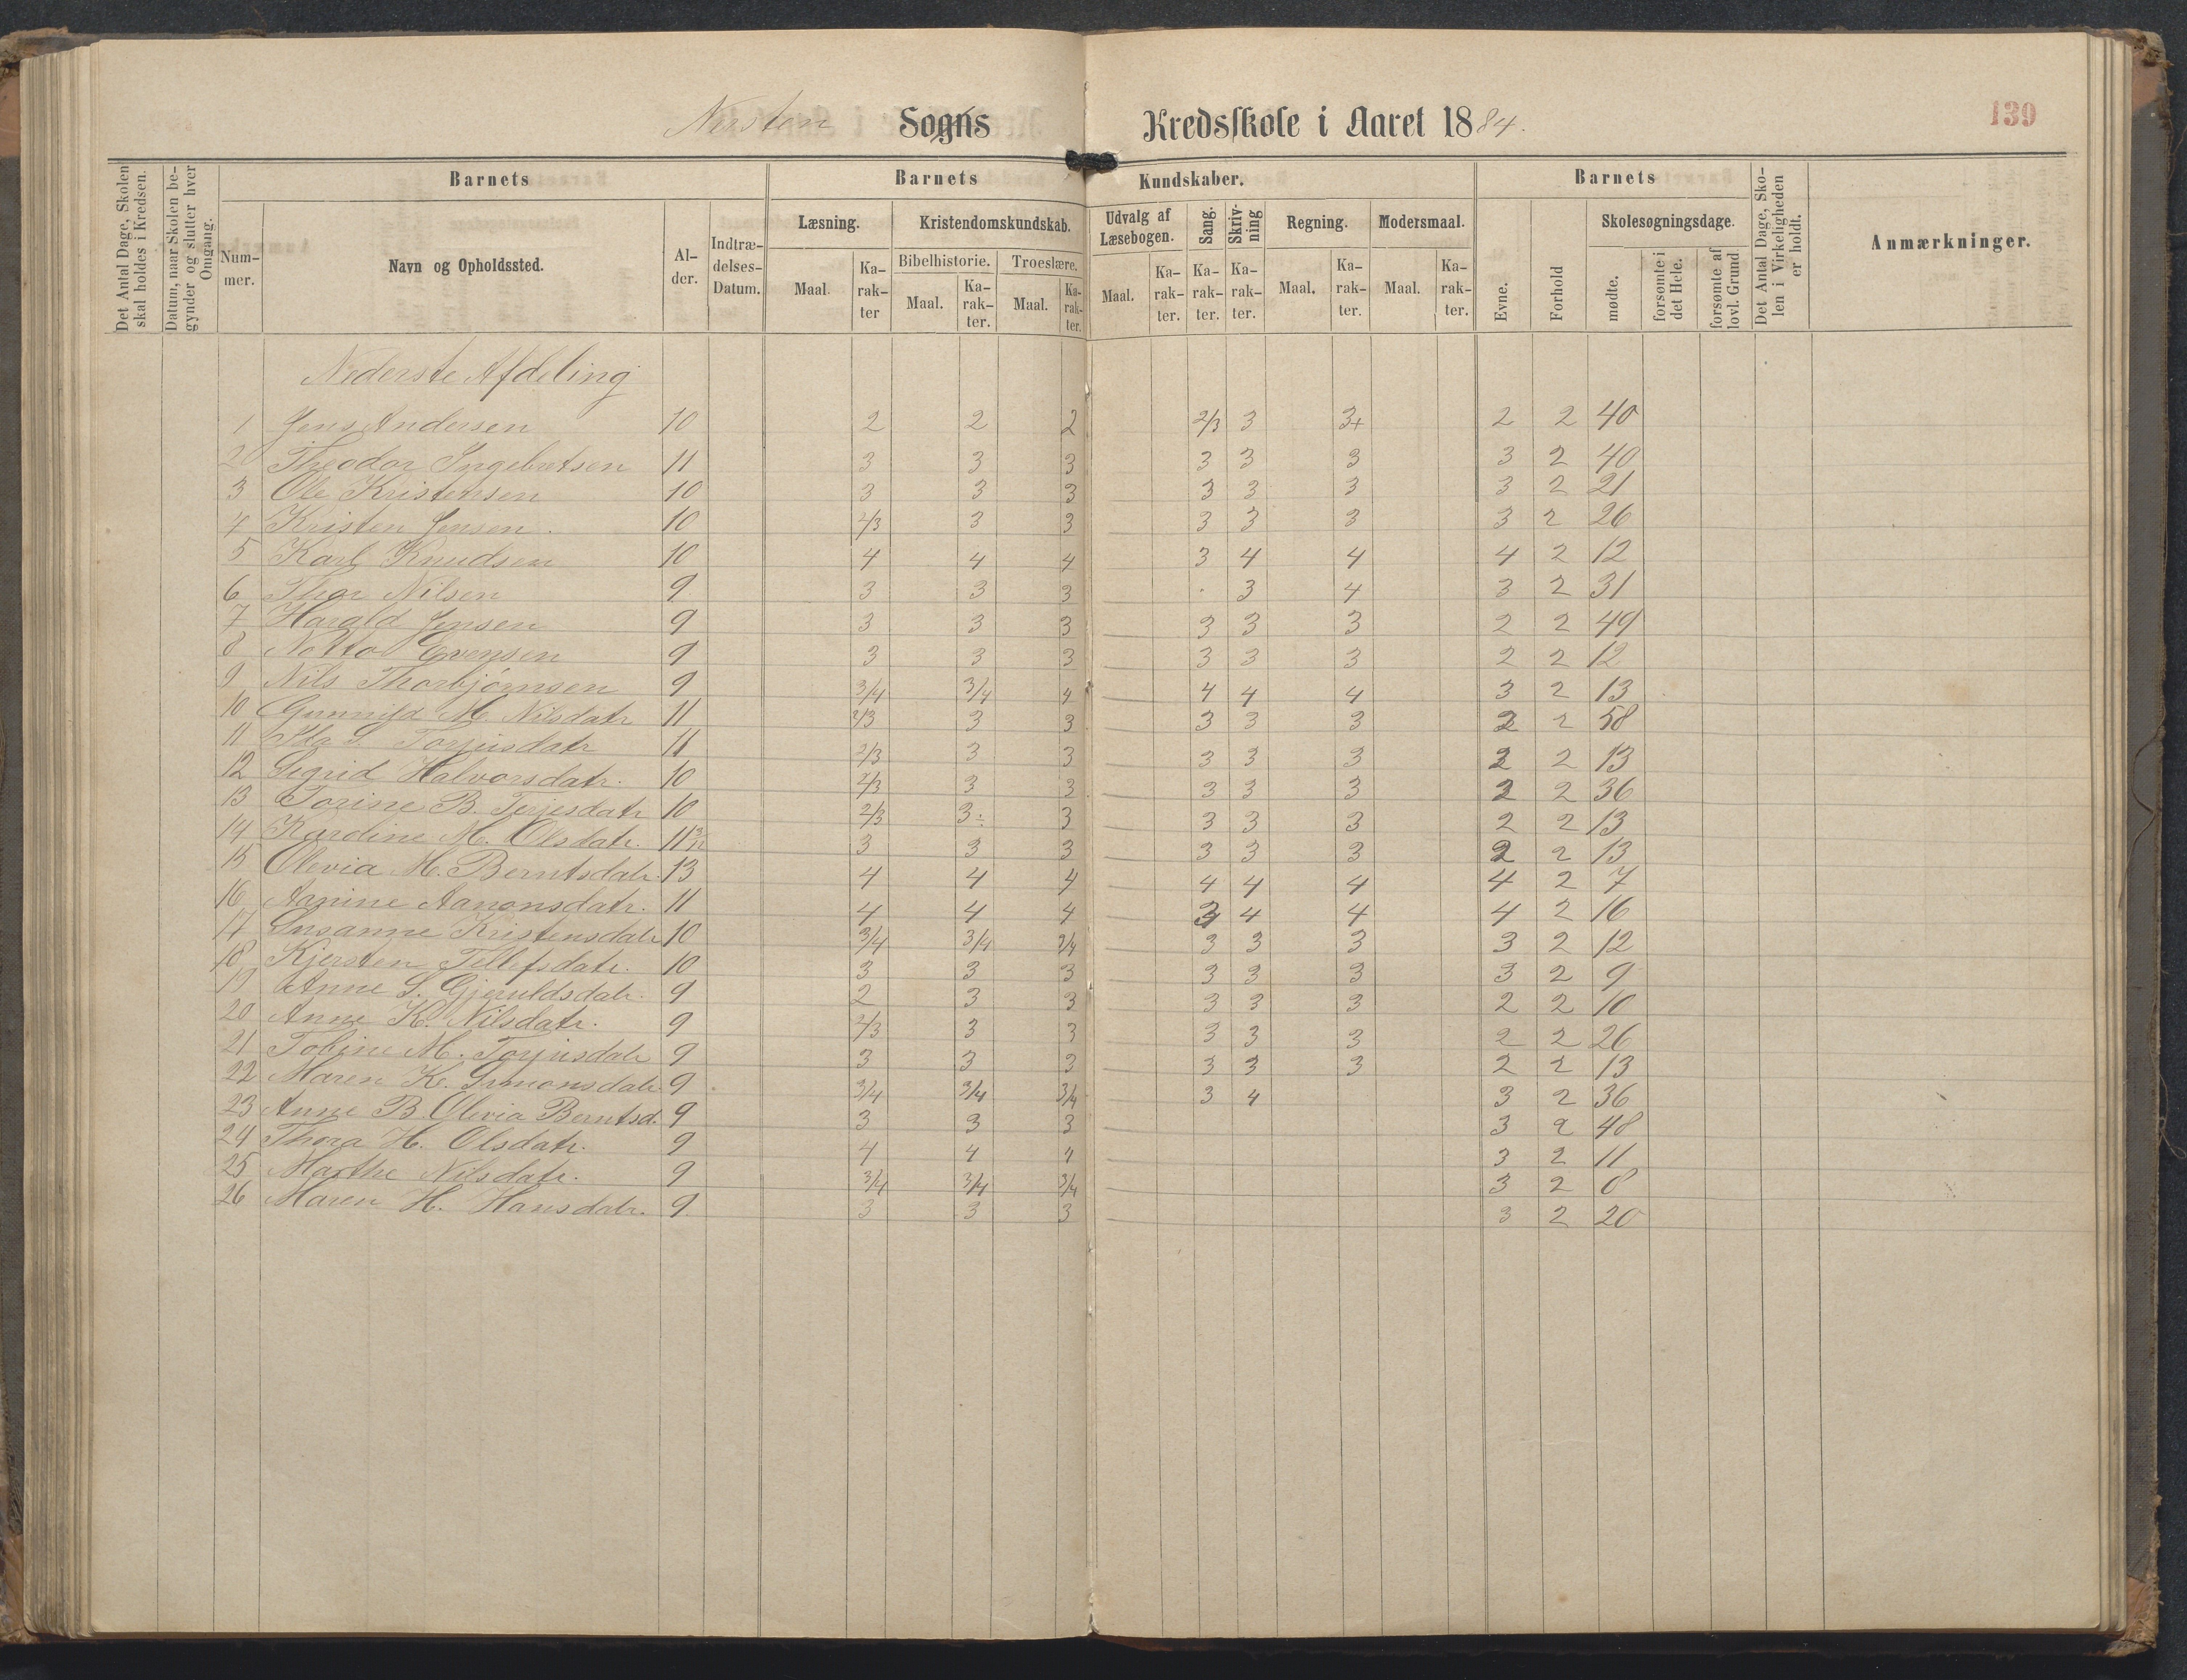 Nersten Sogns Kredsskole i Aaret 1884.
139
Det Antal Dage, Skolen skal holdes i Kredsen.
Datum, naar Skolen begynder og slutter hver Omgang.
Barnets
Nummer.
Navn og Opholdssted.
Alder.
Indtrædelses-Datum.
Barnets Kundskaber.
Læsning.
Maal. Karakter
Kristendomskundskab.
Bibelhistorie. Troeslære.
Maal. Karakter. Maal. Karakter.
Udvalg af Læsebogen.
Maal. Karakter.
Sang. Karakter.
Skrivning Karakter.
Regning.
Maal. Karakter.
Modersmaal.
Maal. Karakter.
Barnets
Evne.
Forhold
Skolesøgningsdage.
mødte.
forsømte i det Hele.
forsømte af lovl. Grund
Det Antal Dage, Skolen i Virkeligheden er holdt.
Anmærkninger.
Nederste Afdeling
1 Jens Andersen 10 2 2 2 2/3 3 3+ 2 2 40
2 Theodor Ingebretsen 11 3 3 3 3 3 3 3 2 40
3 Ole Kristensen 10 3 3 3 3 3 3 3 2 21
4 Kristen Jensen. 10 2/3 3 3 3 3 3 3 2 26
5 Karl Knudsen 10 4 4 4 3 4 4 4 2 12
6 Thor Nilsen 9 3 3 3 . 3 4 3 2 31
7 Harald Jensen 9 3 3 3 3 3 3 2 2 49
8 Notto Evensen 9 3 3 3 3 3 3 2 2 12
9 Nils Thorbjørnsen 9 3/4 3/4 4 4 4 4 3 2 13
10 Gunnild M. Nilsdatr 11 2/3 3 3 3 3 3 2 2 58
11 S. Torjusdatr 11 2/3 3 3 3 3 3 2 2 13
12 Sigrid Halvorsdatr. 10 2/3 3 3 3 3 3 2 2 36
13 Torine B. Terjesdatr 10 2/3 3÷ 3 3 3 3 2 2 13
14 Karoline M. Olsdatr. 11 3 3 3 3 3 3 2 2 13
15 Olevia M. Berntsdatr. 13 4 4 4 4 4 4 4 2 7
16 Aanine Aanonsdatr. 11 4 4 4 3 4 4 4 2 16
17 Susanne Kristensdatr 10 3/4 3/4 3/4 3 3 3 3 2 12
18 Kjersten Tellefsdatr. 10 3 3 3 3 3 3 3 2 9
19 Anne S. Gjeruldsdatr. 9 2 3 3 3 3 3 2 2 10
20 Anne K. Nilsdatr. 9 2/3 3 3 3 3 3 2 2 26
21 Tobine M. Torjusdatr 9 3 3 3 3 3 3 2 2 13
22 Maren K. Simonsdatr. 9 3/4 3/4 3/4 3 4 3 2 36
23 Anne B. Olevia Berntsd. 9 3 3 3 3 2 48
24 Thora H. Olsdatr. 9 4 4 4 3 2 11
25 Marthe Nilsdatr. 9 3/4 3/4 3/4 3 2 8
26 Maren H. Hansdatr. 9 3 3 3 3 2 20